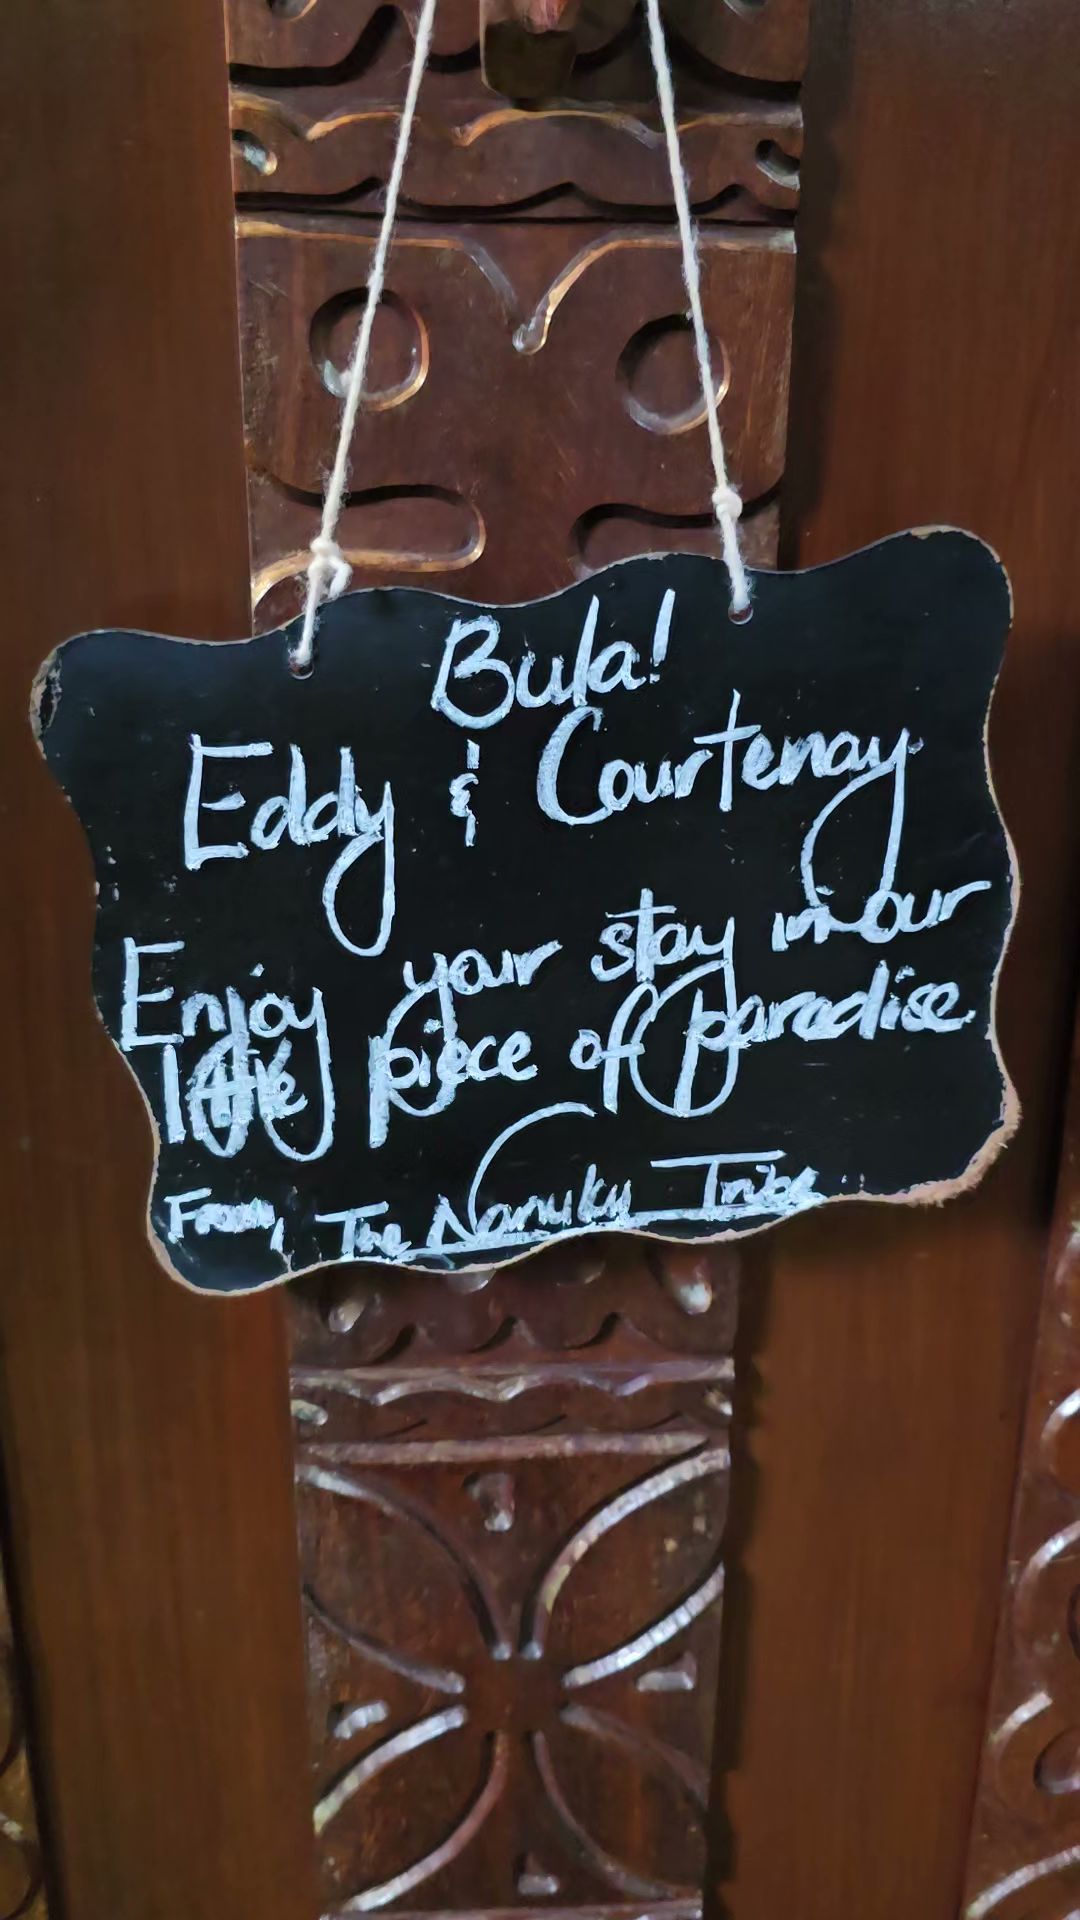 Bula!
Eddy & Courtenay
Enjoy your stay in our
little piece of paradise
From, The Nanuku Tribe